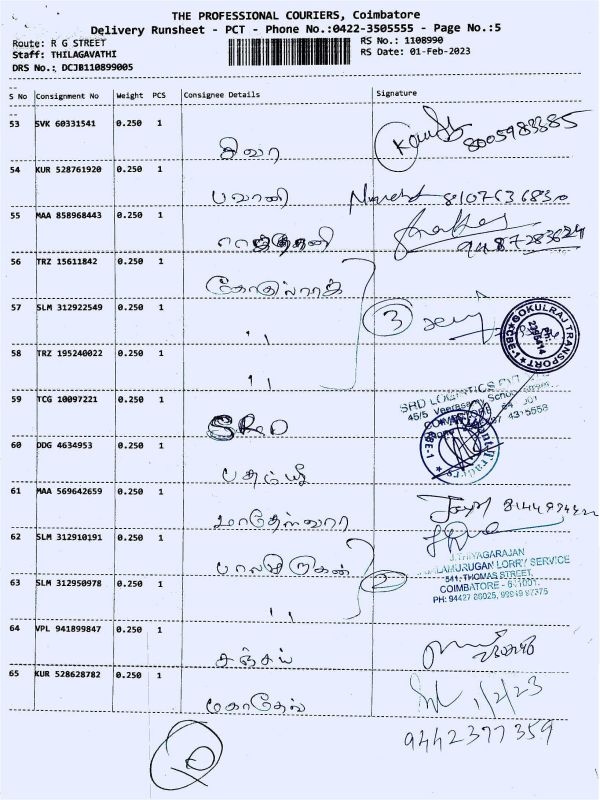 THE PROFESSIONAL COURIERS, Coimbatore
Delivery Runsheet - PCT - Phone No.:0422-3505555 - Page No.:5
Route: R G STREET
RS No.: 1108990
Staff: THILAGAVATHI
RS Date: 01-Feb-2023
DRS No.: DCJB110899005
S No Consignment No Weight PCS Consignee Details Signature
53 SVK 60331541 0.250 1 சிவா 8005983385
54 KUR 528761920 0.250 1 பவானி 8107636830
55 MAA 858968443 0.250 1
56 TRZ 15611842 0.250 1 கோகுல்ராஜ்
57 SLM 312922549 0.250 1 " 3
GOKULRAJ TRANSPORT
CBE-1
58 TRZ 195240022 0.250 1 "
59 TCG 10097221 0.250 1 SRD
SRD LOGISTICS PVT
60 DDG 4634953 0.250 1
CBE-1
61 MAA 569642659 0.250 1 மாதேஸ்வரா
62 SLM 312910191 0.250 1 பாலமுருகன்
J.THIYAGARAJAN
BALAMURUGAN LORRY SERVICE
63 SLM 312950978 0.250 1 " 2
541, THOMAS STREET,
COIMBATORE - 641001.
64 VPL 941899847 0.250 1 சஞ்சய்
65 KUR 528628782 0.250 1 மகாதேவ் 1/2/23
9442377359